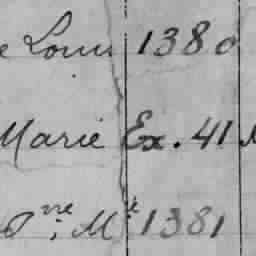 e Louis 1380
Marie Ex. 41
Pne. Mt 1381